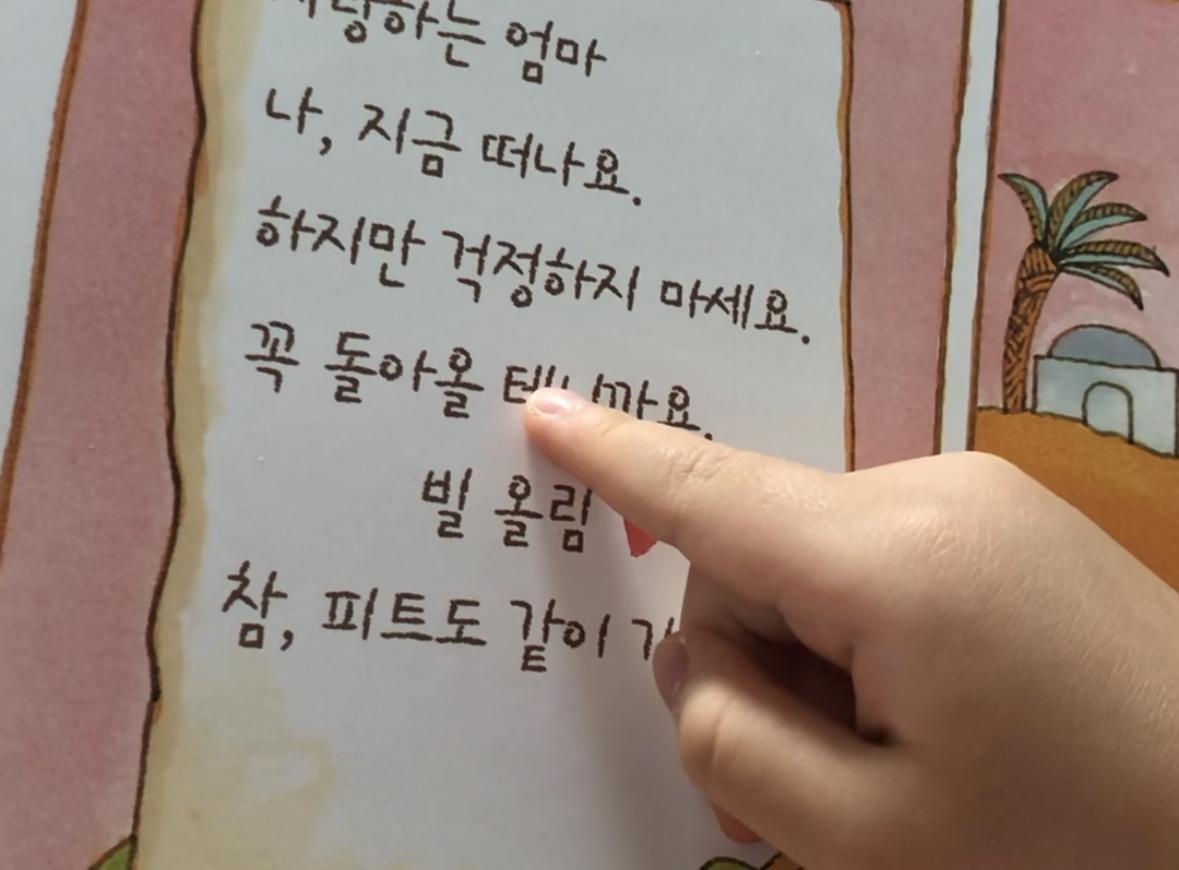 사랑하는 엄마
나, 지금 떠나요.
하지만 걱정하지 마세요.
꼭 돌아올 테니까요.
빌 올림
참, 피트도 같이